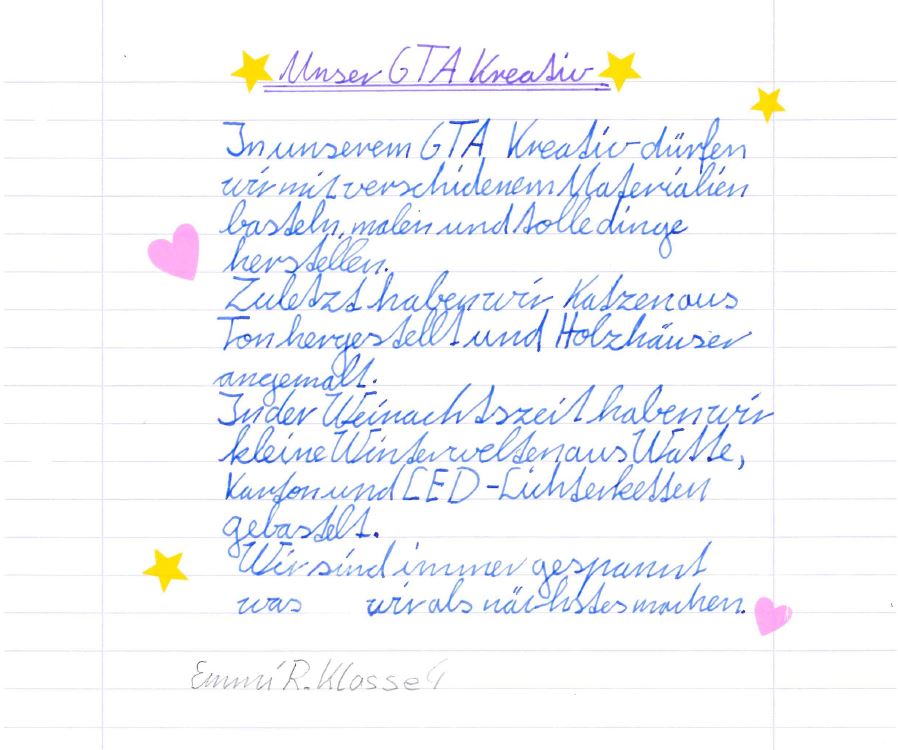 Unser GTA Kreativ
In unserem GTA Kreativ dürfen
wir mit verschidenem Materialien
basteln, malen und tolle dinge
herstellen.
Zuletzt haben wir Katzen aus
Ton hergestellt und Holzhäuser
angemalt.
In der Weinachtszeit haben wir
kleine Winterwelten aus Watte,
Karton und LED-Lichterketten
gebastelt.
Wir sind immer gespannt
was wir als nächstes machen.
Emmi R. Klasse 4